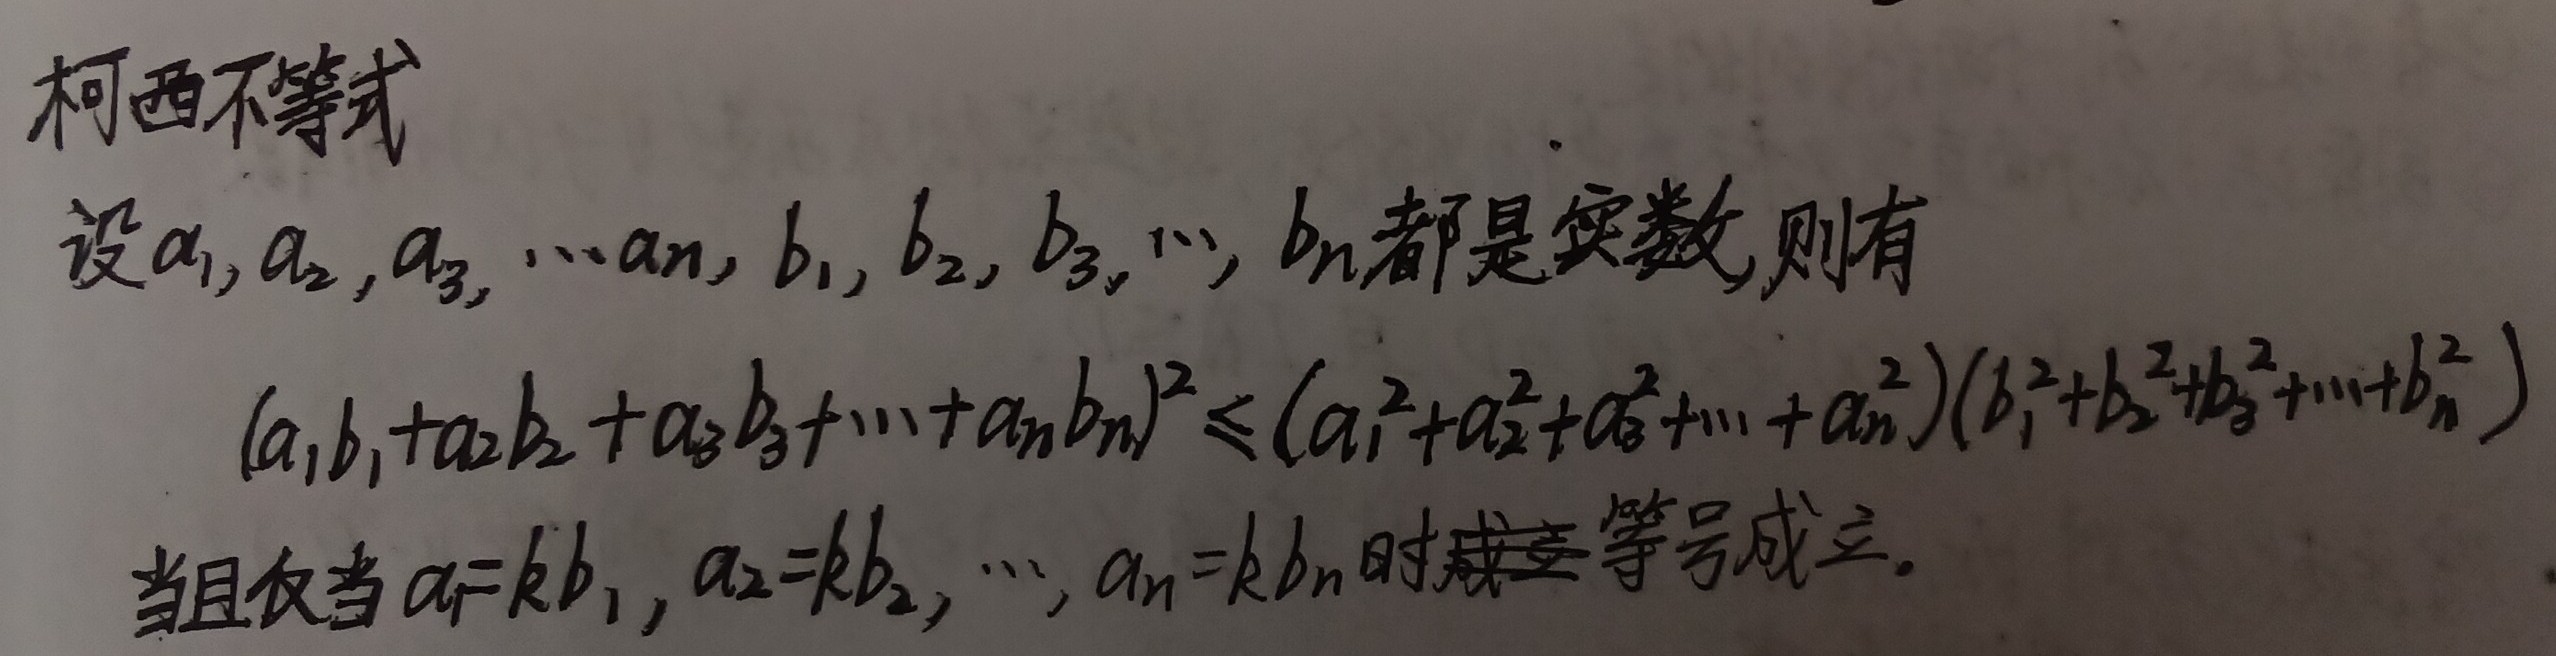 柯西不等式
设a₁, a₂, a₃, …aₙ, b₁, b₂, b₃, …, bₙ都是实数,则有
(a₁b₁+a₂b₂+a₃b₃+…+aₙbₙ)²≤(a₁²+a₂²+a₃²+…+aₙ²)(b₁²+b₂²+b₃²+…+bₙ²)
当且仅当a₁=kb₁, a₂=kb₂, …, aₙ=kbₙ时成立等号成立。